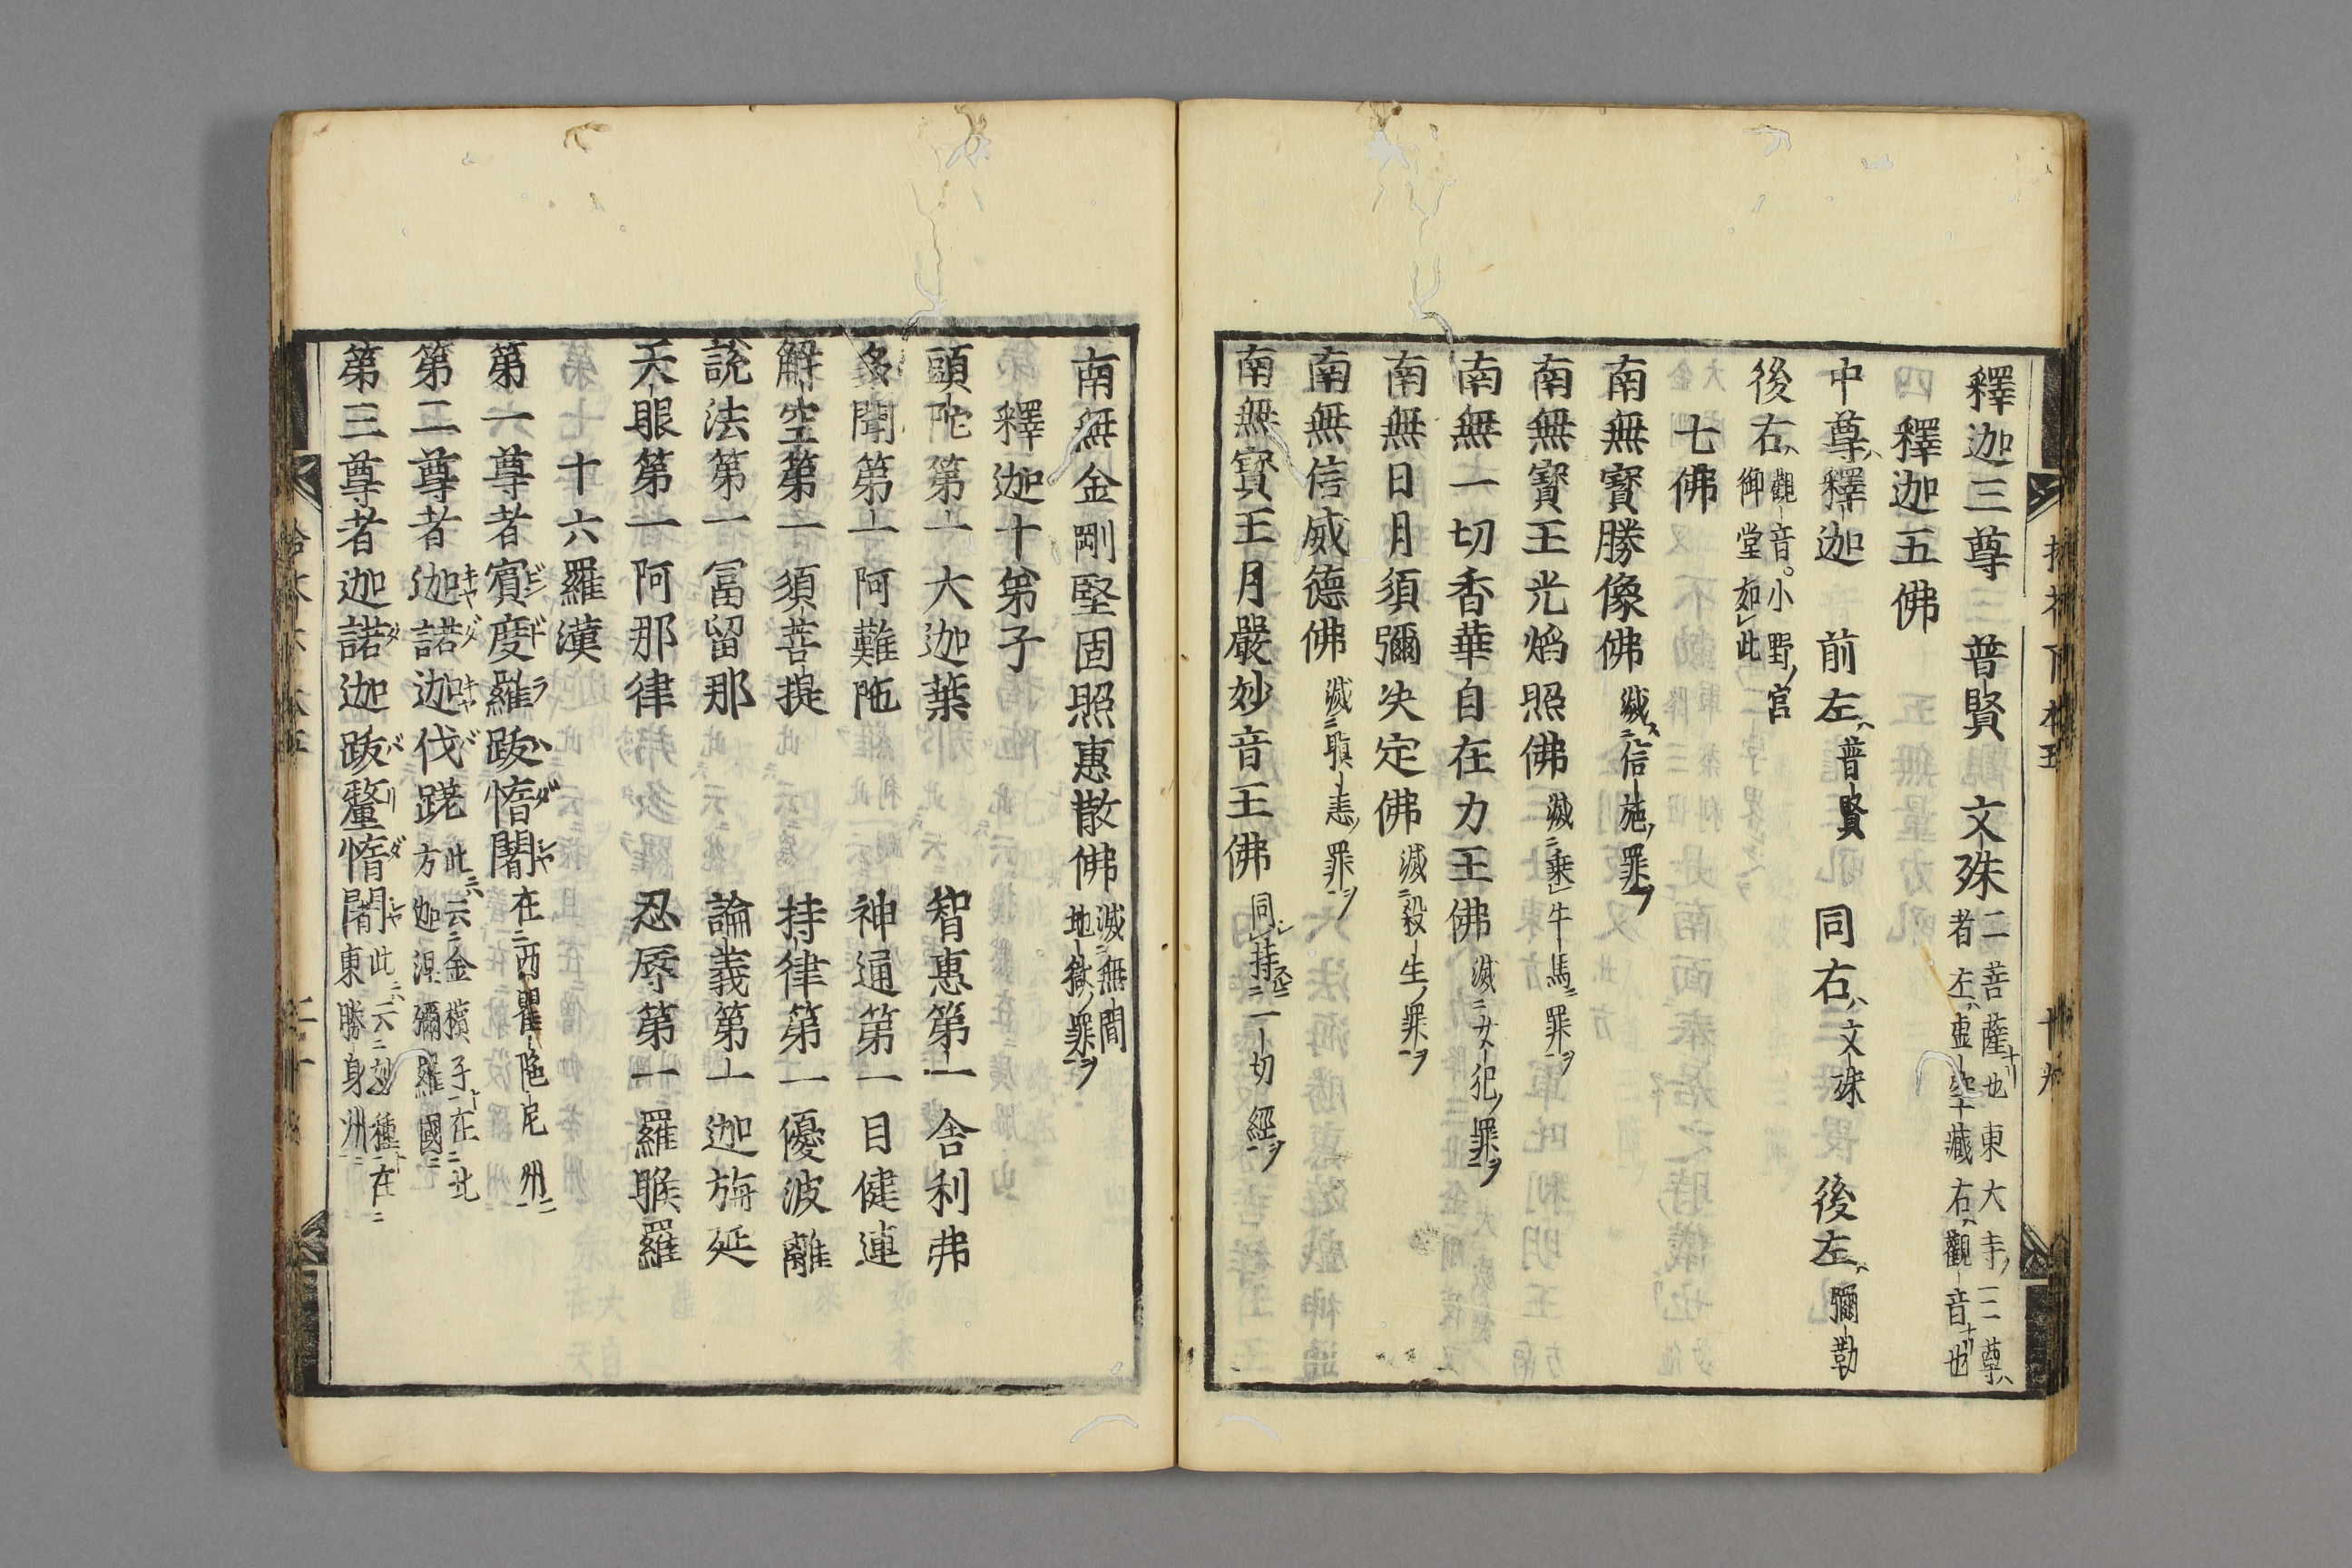 釋迦三尊 普賢 文殊 二菩薩ナリ也東大寺ノ三尊ハ
者左ハ虚空藏右ハ觀音ナリ也
釋迦五佛
中尊ハ釋迦 前左ハ普賢 同右ハ文殊 後左ハ彌勒
後右ハ觀音。小野ノ宮
御堂如レ此
七佛
南無寶勝像佛 滅ス二信施ノ罪一ヲ
南無寶王光焰照佛 滅二乘レ牛馬罪一ヲ
南無一切香華自在力王佛 滅二女犯ノ罪一ヲ
南無日月須彌决定佛 滅二殺生ノ罪一ヲ
南無信威德佛 滅二瞋恚ノ罪一ヲ
南無寶王月嚴妙音王佛 同レ持二一切經一ヲ
南無金剛堅固照惠散佛 滅二無間
地獄ノ罪一ヲ
釋迦十弟子
頭陀第一大迦葉 智惠第一舎利弗
多聞第一阿難陁 神通第一目健連
解空第一須菩提 持律第一優波離
說法第一冨留那 論義第一迦旃延
天眼第一阿那律 忍辱第一羅睺羅
十六羅漢
第一尊者賓度羅跋惰闍 在二西瞿陁尼州一ニ
第二尊者迦諾迦伐蹉 此ニハ云二金積子ト一在二北
方迦濕彌羅國一ニ
第三尊者迦諾迦跋釐惰闍 此ニハ云二妙種ト一在二
東勝身洲一ニ